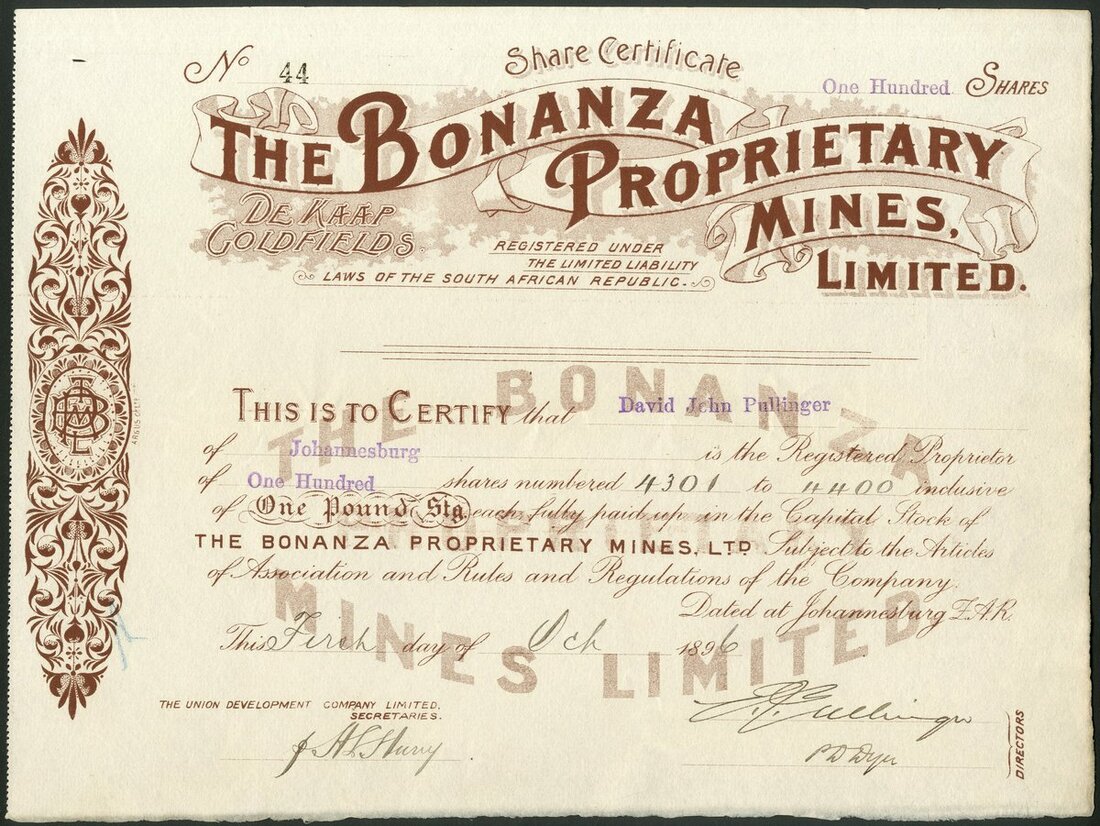 No 44
Share Certificate
One Hundred Shares
THE BONANZA
PROPRIETARY
MINES,
LIMITED.
DE KAAP
GOLDFIELDS.
REGISTERED UNDER
THE LIMITED LIABILITY
LAWS OF THE SOUTH AFRICAN REPUBLIC.
THE BONANZA
PROPRIETARY
MINES LIMITED
THIS IS TO CERTIFY that David John Pullinger
of Johannesburg is the Registered Proprietor
of One Hundred shares numbered 4301 to 4400 inclusive
of One Pound Stg each, fully paid up in the Capital Stock of
THE BONANZA PROPRIETARY MINES, LTD. Subject to the Articles
of Association and Rules and Regulations of the Company.
Dated at Johannesburg Z.A.R.
This day of Oct 1896
THE UNION DEVELOPMENT COMPANY LIMITED,
SECRETARIES.
DIRECTORS